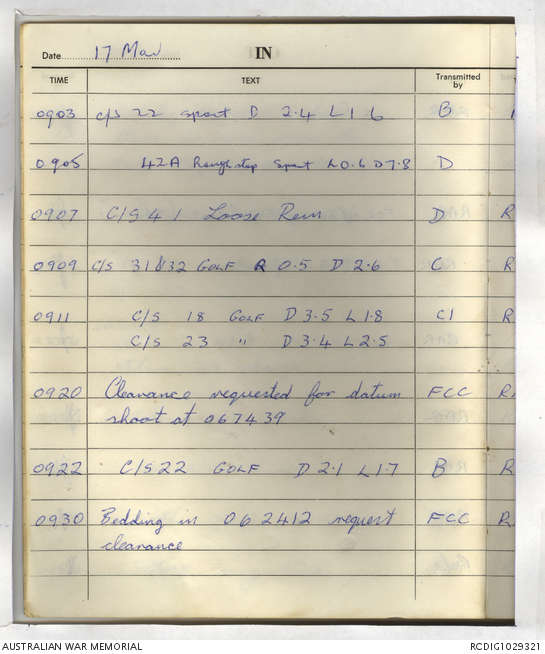 Date 17 Mar IN
TIME TEXT Transmitted by
0903 c/s 22 sport D 2.4 L 1 6 B
0905 42A Rough step sport L 0.6 D 7.8 D
0907 C/S 41 Loose Rein D R
0909 C/S 31&32 GOLF R 0.5 D 2.6 C R
0911 C/S 18 GOLF D 3.5 L 1.8 C1 R
C/S 23 " D 3.4 L 2.5
0920 Clearance requested for datum FCC R
shoot at 067439
0922 C/S 22 GOLF D 2.1 L 1 7 B R
0930 Bedding in 062412 request FCC R
clearance
AUSTRALIAN WAR MEMORIAL RCDIG1029321